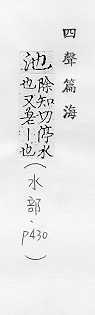 四聲篇海
池除知切停水
也又姜〡也(水部、p430)